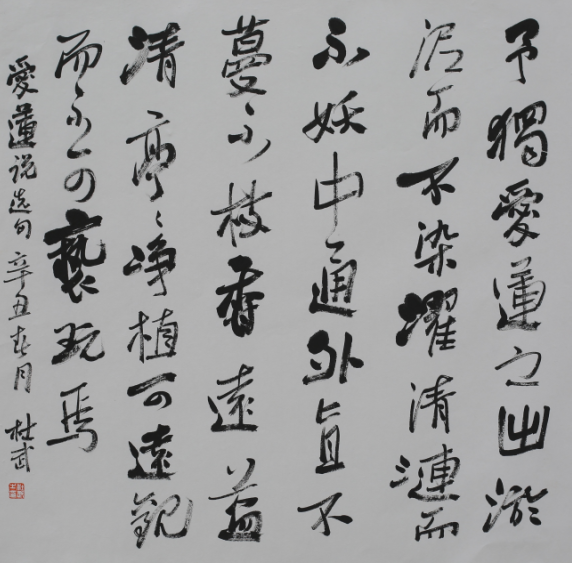 予獨愛蓮之出淤
泥而不染濯清漣而
不妖中通外直不
蔓不枝香遠益
清亭〻净植可遠觀
而不可褻玩焉
愛蓮说选句 辛丑春月 杜武